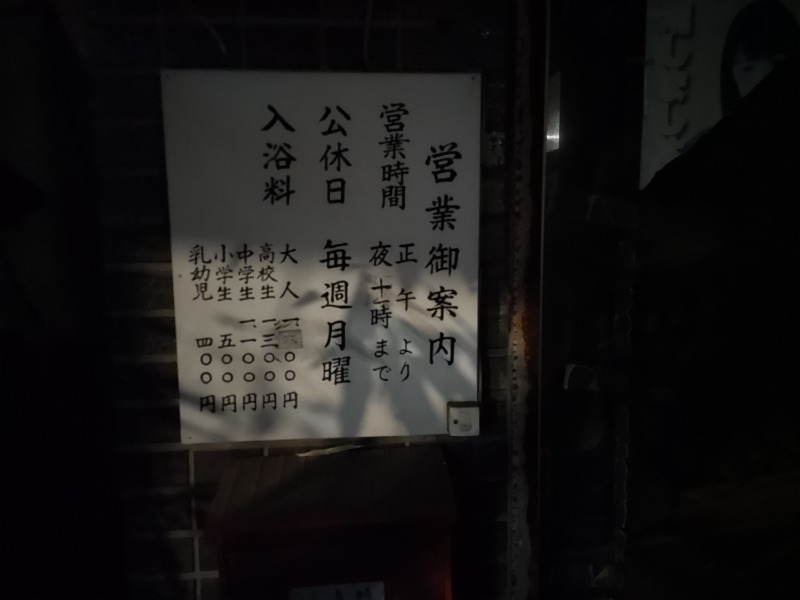 営業御案内
営業時間 正午より
夜十一時まで
公休日 毎週月曜
入浴料 大人 一、〇〇円
高校生 一、三〇〇円
中学生 一、一〇〇円
小学生 五〇〇円
乳幼児 四〇〇円